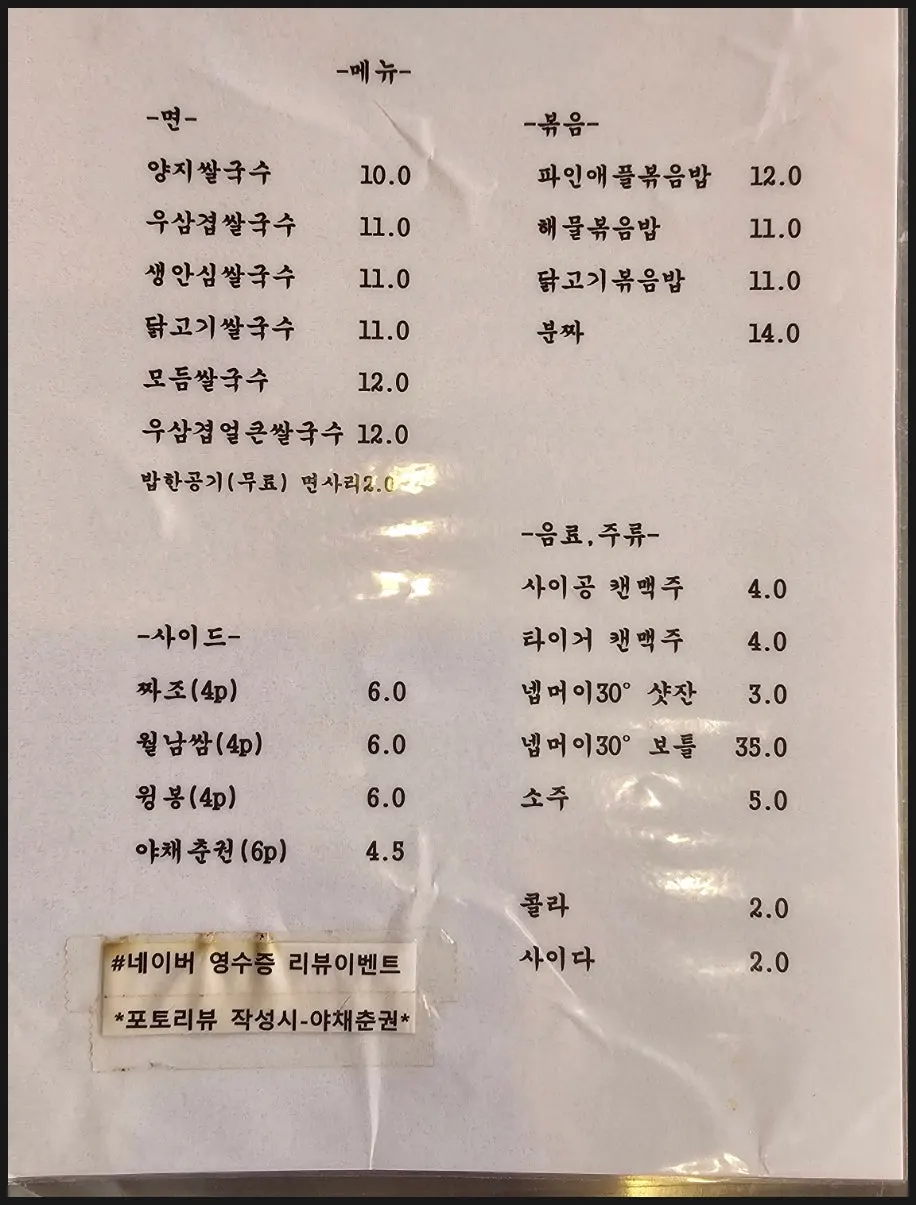 -메뉴-
-면-
양지쌀국수 10.0
우삼겹쌀국수 11.0
생안심쌀국수 11.0
닭고기쌀국수 11.0
모듬쌀국수 12.0
우삼겹얼큰쌀국수 12.0
밥한공기(무료) 면사리2.0
-사이드-
짜조(4p) 6.0
월남쌈(4p) 6.0
윙봉(4p) 6.0
야채춘권(6p) 4.5
#네이버 영수증 리뷰이벤트
*포토리뷰 작성시-야채춘권*
-볶음-
파인애플볶음밥 12.0
해물볶음밥 11.0
닭고기볶음밥 11.0
분짜 14.0
-음료,주류-
사이공 캔맥주 4.0
타이거 캔맥주 4.0
넵머이30° 샷잔 3.0
넵머이30° 보틀 35.0
소주 5.0
콜라 2.0
사이다 2.0